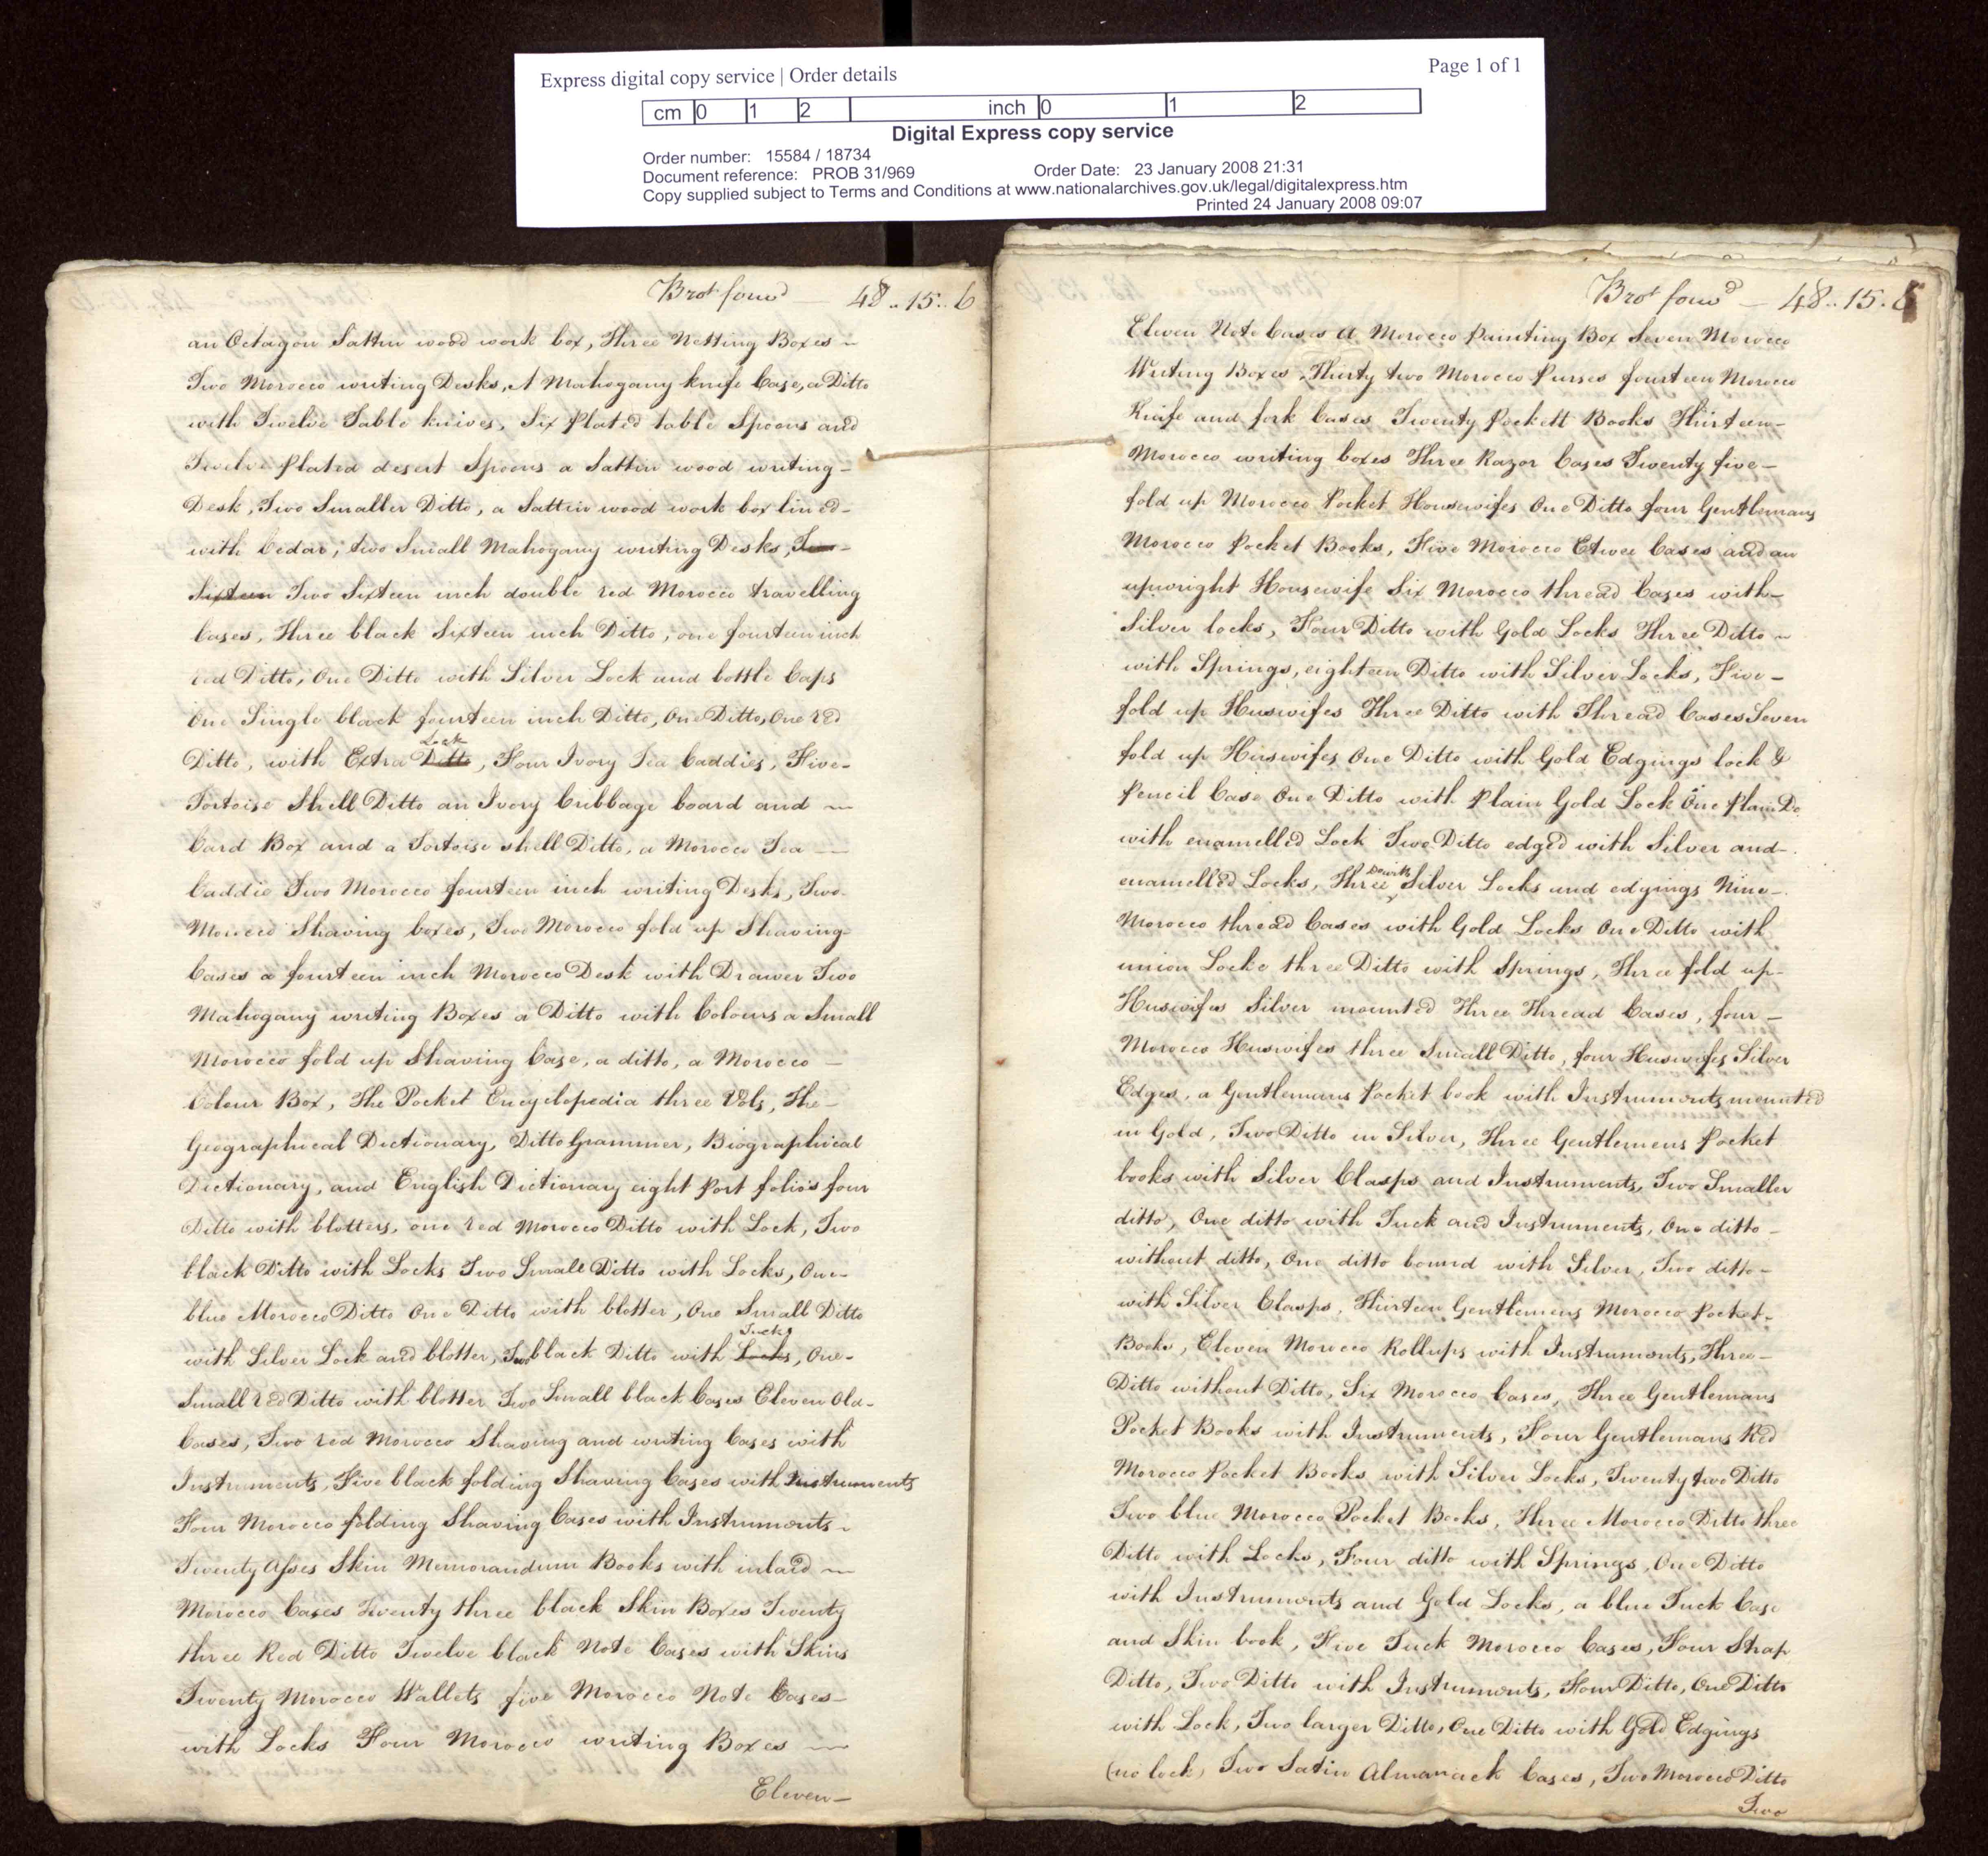 Express digital copy service | Order details
Page 1 of 1
cm 0 1 2 inch 0 1 2
Digital Express copy service
Order number: 15584 / 18734
Document reference: PROB 31/969
Order Date: 23 January 2008 21:31
Copy supplied subject to Terms and Conditions at www.nationalarchives.gov.uk/legal/digitalexpress.htm
Printed 24 January 2008 09:07
Brot forwd — 48..15..6
an Octagon Sattin wood work box, Three Netting Boxes
Two Morocco writing Desks, A Mahogany knife Case, a Ditto
with Twelve Table knives, Six Plated table Spoons and
Twelve Plated desert Spoons a Sattin wood writing-
Desk, Two Smaller Ditto, a Sattin wood work box lined-
with Cedar, two Small Mahogany writing Desks,
Sixteen Two Sixteen inch double red Morocco travelling
Cases, Three black Sixteen inch Ditto, one fourteen inch
red Ditto, One Ditto with Silver Lock and bottle Caps
One Single black fourteen inch Ditto, One Ditto, One red
Lock
Ditto, with Extra Ditto, Four Ivory Tea Caddies, Five-
Tortoise Shell Ditto an Ivory Cubbage board and
Card Box and a Tortoise shell Ditto, a Morocco Tea
Caddie Two Morocco fourteen inch writing Desks, Two
Morocco Shaving boxes, Two Morocco fold up Shaving-
Cases a fourteen inch Morocco Desk with Drawer Two
Mahogany writing Boxes a Ditto with Colours a Small
Morocco fold up Shaving Case, a ditto, a Morocco —
Colour Box, The Pocket Encyclopedia three Vols, The-
Geographical Dictionary, Ditto Grammer, Biographical
Dictionary, and English Dictionary eight Port folios four
Ditto with blotters, one red Morocco Ditto with Lock, Two
black Ditto with Locks Two Small Ditto with Locks, One-
blue Morocco Ditto One Ditto with blotter, One Small Ditto
Tucks
with Silver Lock and blotter, Two black Ditto with Locks, One-
Small red Ditto with blotter Two Small black Cases Eleven Old-
Cases, Two red Morocco Shaving and writing Cases with
Instruments, Five black folding Shaving Cases with Instruments
Four Morocco folding Shaving Cases with Instruments-
Twenty Asses Skin Memorandum Books with inlaid
Morocco Cases Twenty three black Skin Boxes Twenty
three Red Ditto Twelve black Note Cases with Skins
Twenty Morocco Wallets five Morocco Note Cases-
with Locks Four Morocco writing Boxes
Eleven-
Brot forwd — 48..15..6
Eleven Note Cases A Morocco Painting Box Seven Morocco
Writing Boxes, Thirty two Morocco Purses fourteen Morocco
Knife and fork Cases Twenty Pockett Books Thirteen-
Morocco writing boxes Three Razor Cases Twenty five-
fold up Morocco Pocket Housewifes One Ditto four Gentlemans
Morocco Pocket Books, Five Morocco Etwee Cases and an
upwright Housewife Six Morocco thread Cases with-
Silver locks, Four Ditto with Gold Locks Three Ditto
with Springs, eighteen Ditto with Silver Locks, Five-
fold up Huswifes Three Ditto with Thread Cases Seven
fold up Huswifes One Ditto with Gold Edgings lock &
Pencil Case One Ditto with Plain Gold Lock One Plain Do
with enamelled Lock Two Ditto edged with Silver and-
enamelled Locks, Three Silver Locks and edgings Nine-
Morocco thread Cases with Gold Locks One Ditto with
union Locke three Ditto with Springs, Three fold up-
Huswifes Silver mounted Three Thread Cases, four-
Morocco Huswifes three Small Ditto, four Huswifes Silver
Edges, a Gentlemans Pocket book with Instruments mounted
in Gold, Two Ditto in Silver, Three Gentlemens Pocket
books with Silver Clasps and Instruments, Two Smaller
ditto, One ditto with Tuck and Instruments, One ditto-
without ditto, One ditto bound with Silver, Two ditto-
with Silver Clasps, Thirteen Gentlemens Morocco Pocket-
Books, Eleven Morocco Rollups with Instruments, Three-
Ditto without Ditto, Six Morocco Cases, Three Gentlemans
Pocket Books with Instruments, Four Gentlemans Red
Morocco Pocket Books with Silver Locks, Twenty two Ditto
Two blue Morocco Pocket Books, Three Morocco Ditto three
Ditto with Locks, Four ditto with Springs, One Ditto
with Instruments and Gold Locks, a blue Tuck Case
and Skin book, Five Tuck Morocco Cases, Four Strap
Ditto, Two Ditto with Instruments, Four Ditto, One Ditto
with Lock, Two larger Ditto, One Ditto with Gold Edgings
(no lock) Two Satin Almanack Cases, Two Morocco Ditto
Two